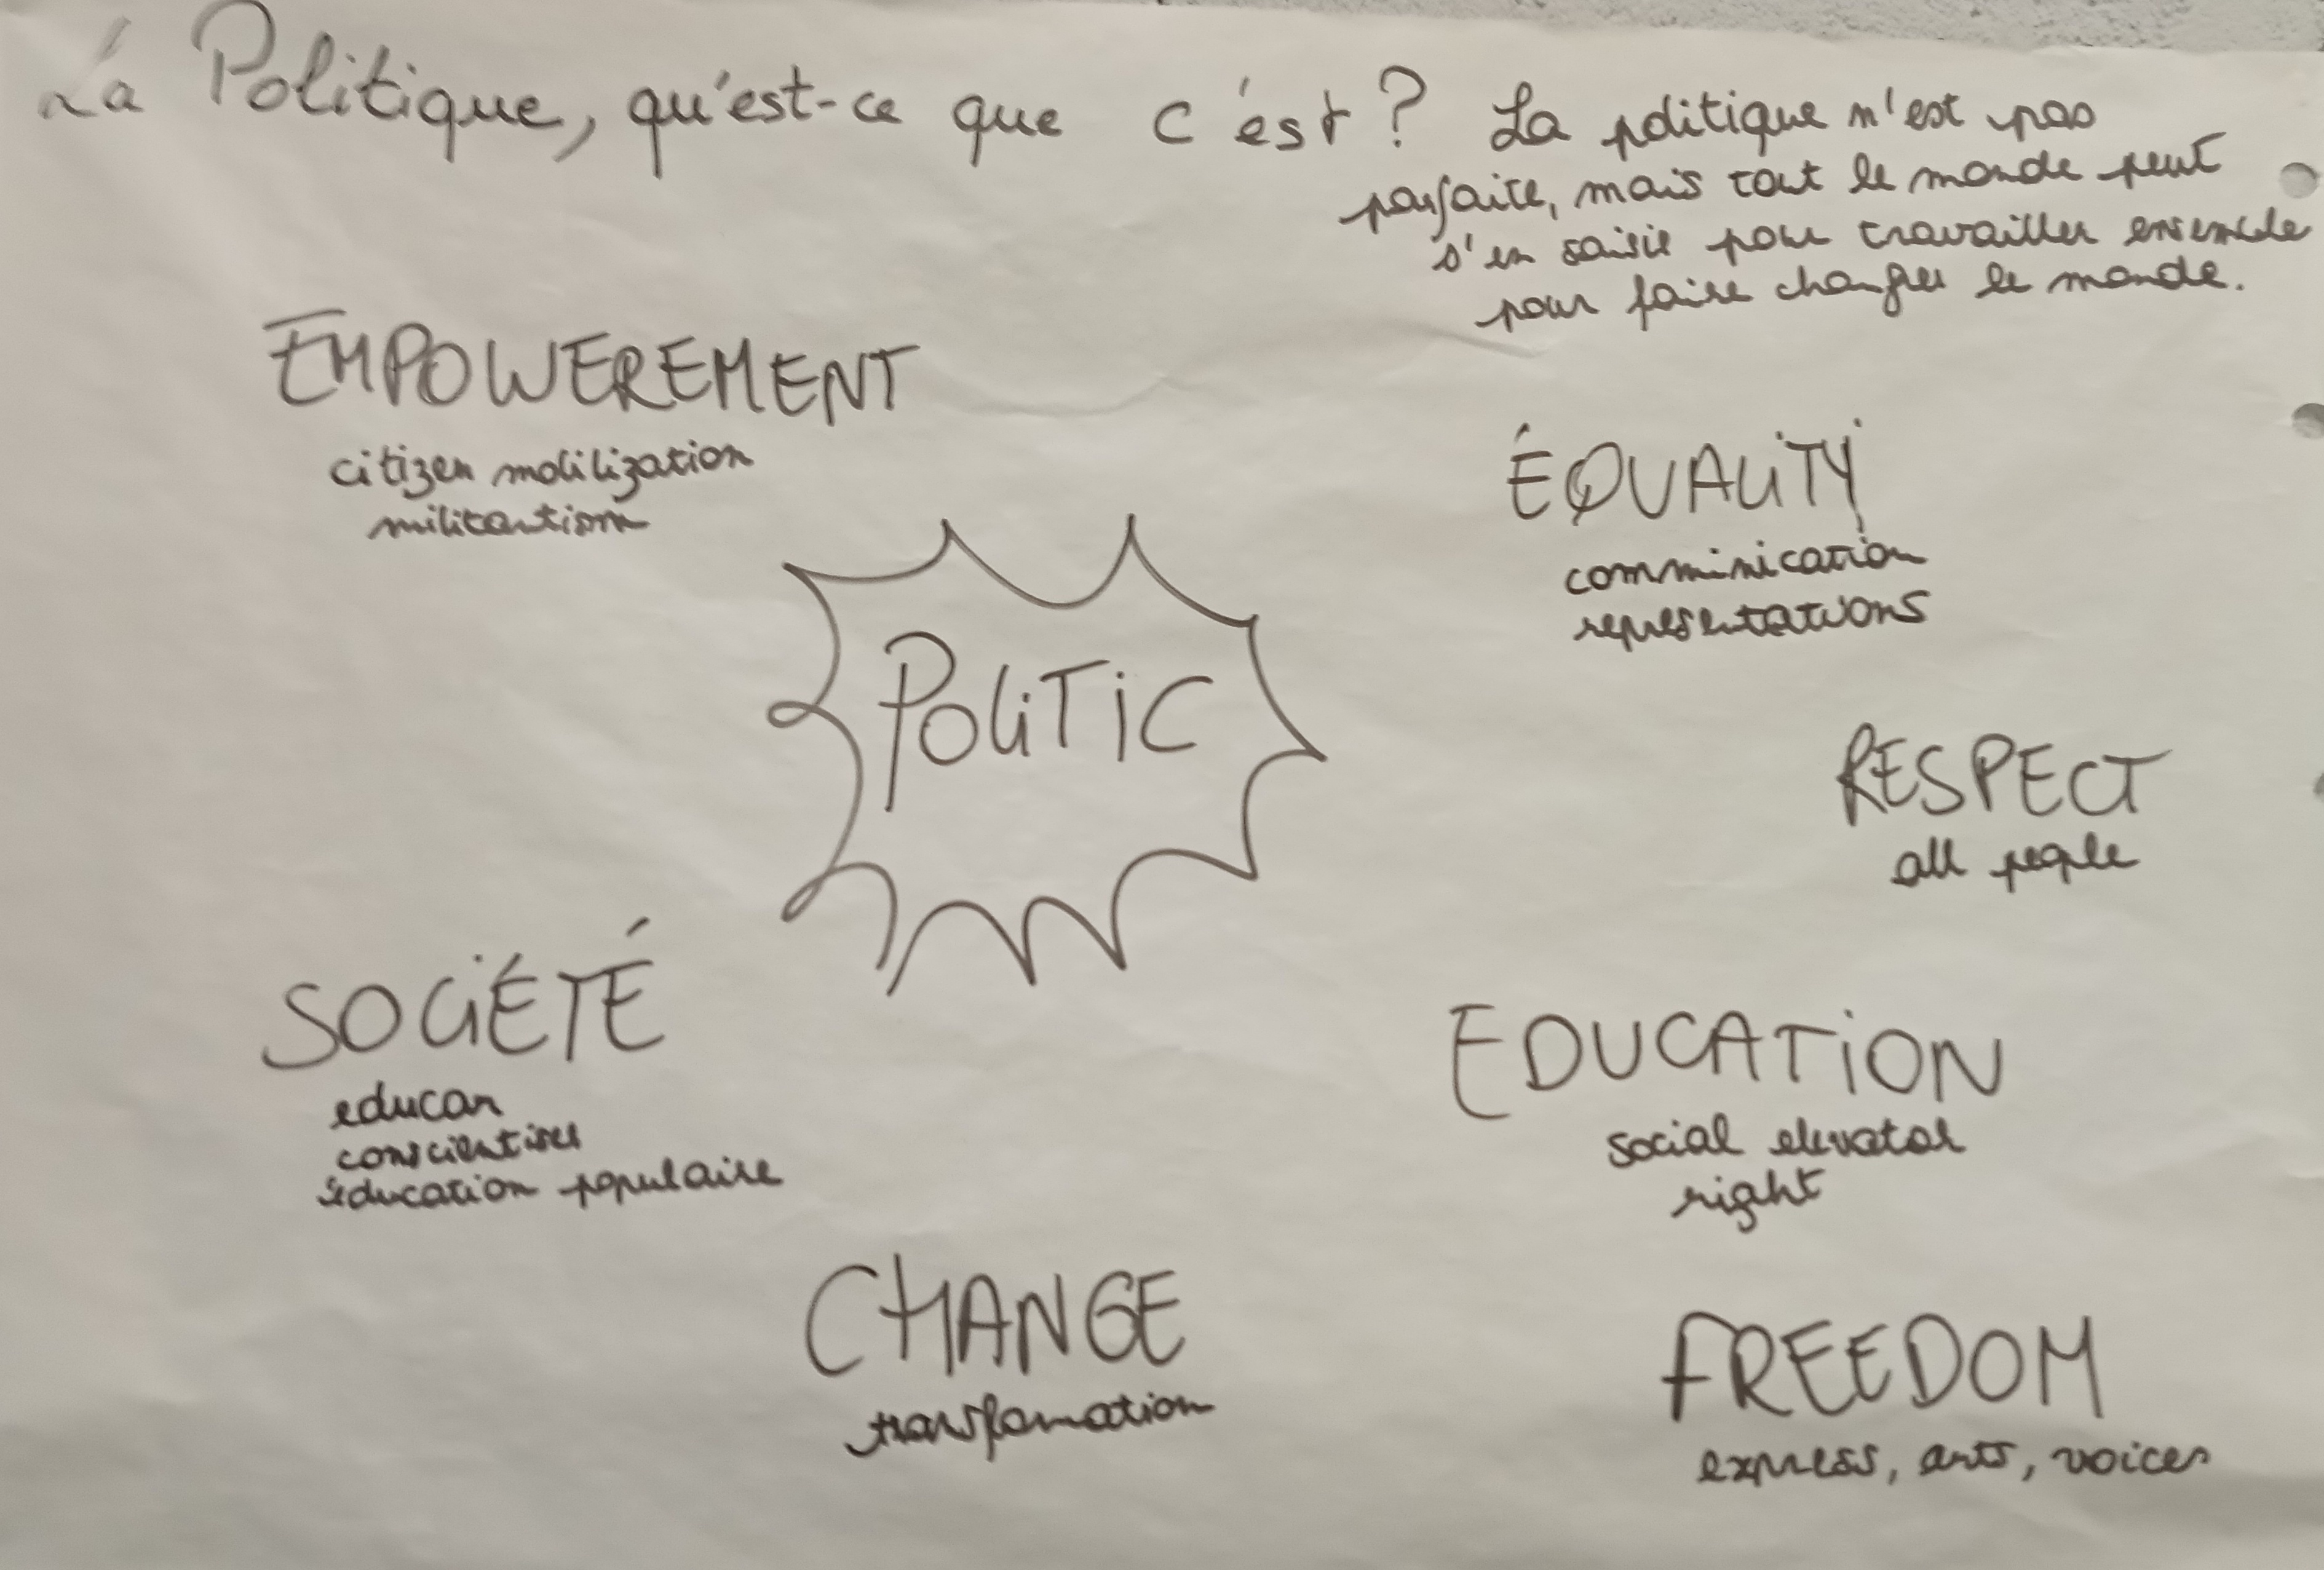 La Politique, qu'est-ce que c'est ? La politique n'est pas
parfaite, mais tout le monde peut
s'en saisir pour travailler ensemble
pour faire changer le monde.
EMPOWEREMENT
citizen mobilization
militantism
ÉQUALITY
comminication
representations
POLITIC
RESPECT
all people
SOCIÉTÉ
educar
conscientiser
éducation populaire
EDUCATION
social elevator
right
CHANGE
transfomation
FREEDOM
express, arts, voices